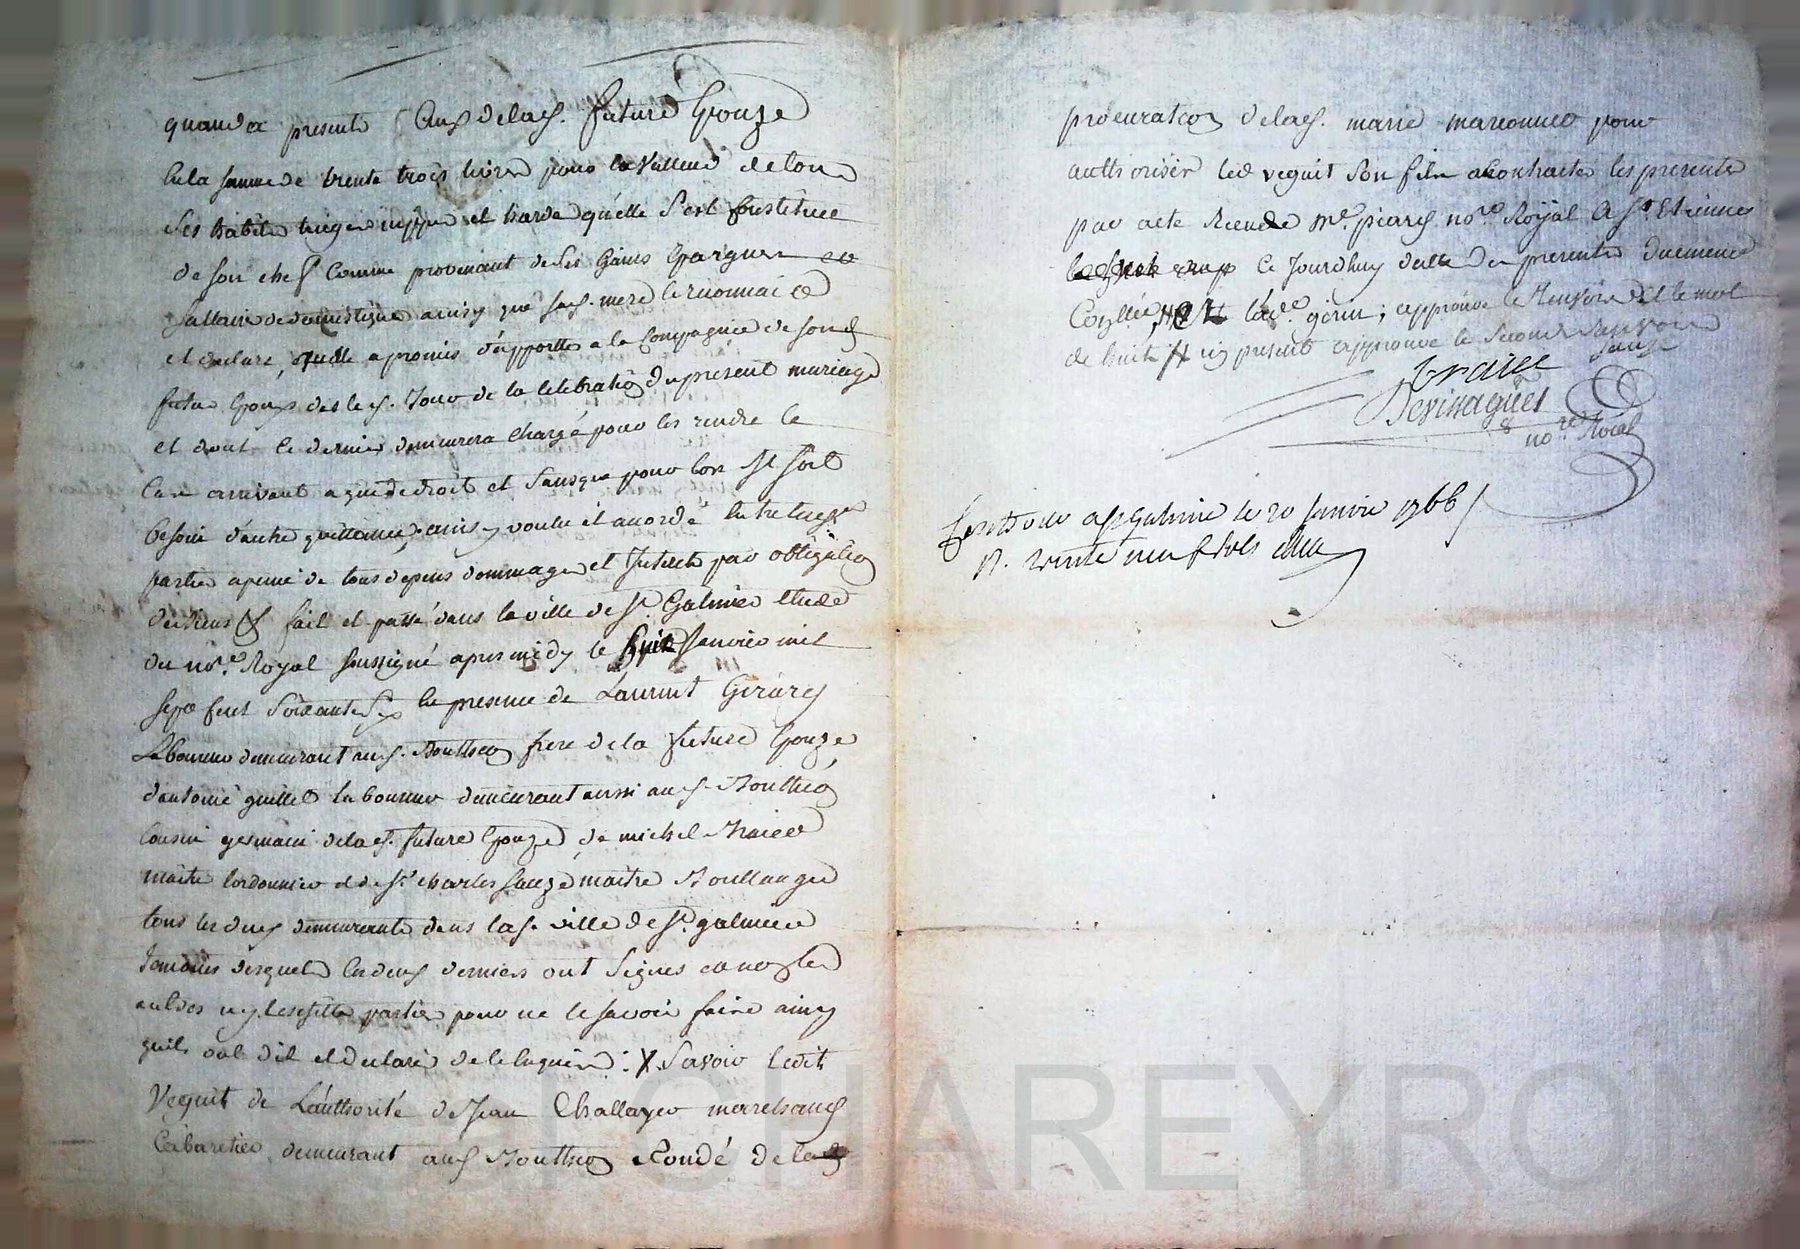 quand a presente Aus de lad. future Epouze
En la somme de trente trois livres pour la valleur de tous
Ses habits linges nippes et hardes qu'elle s'est Constituée
de son chef Comme provenant de ses Gains Epargnes et
Sallaire de domestique ainsy que sad. mere le reconnait
et declare, quelle a promis d'apporter a la Compagnie de sond.
futur Epoux des le d. Jour de la Celebration du present mariage
et dont Ce dernier demeurera chargé pour les rendre le
Cas arrivant a qui de droit et sans que pour lors Il soit
besoin d'autre quittance, ainsy voulu et accordé Entre lesd.
parties a peine de tous depens dommages et Interets par obligation
de biens & fait et passé dans la ville de St. Galmier Etude
du nore. Royal soussigné apres midy le huit Janvier mil
sept Cent Soixante Six En presence de Laurent Girard
Laboureur demeurant aud. Bouthéon frere de la future Epouze
d'antoine guillet laboureur demeurant aussi aud. Bouthéon
Cousin germain de la d. future Epouze, de michel Traiee
maitre Cordonnier et de Sr. charles Sauzé maitre Boullanger
tous les deux demeurants dans la d. ville de St. galmier
temoins desquels les deux derniers ont Signés et non les
autres ny lesdittes parties pour ne le savoir faire ainsy
quils ont dit et declaré de ce Enquis : X Savoir ledit
Veguit de L'authorité de Jean Challayer marchand
Cabaretier demeurant aud. Bouthéon fondé de la
procuration de lad. marie marconnier pour
authoriser led. veguit Son fils a Contracter les presentes
par acte Recu de Me. picard nore. Royal a St. Etienne
Ce Jourdhuy datte des presentes duement
Contrôllée, par led. Sr. gerin; approuvé le Renvoi et le mot
de huit X ny present approuvé le second Renvoi
Traiee Sauze
Devinagues
nore. Roial
Controllé a St Galmier le 20 Janvier 1766
R. vingt neuf sols
© CHAREYRON